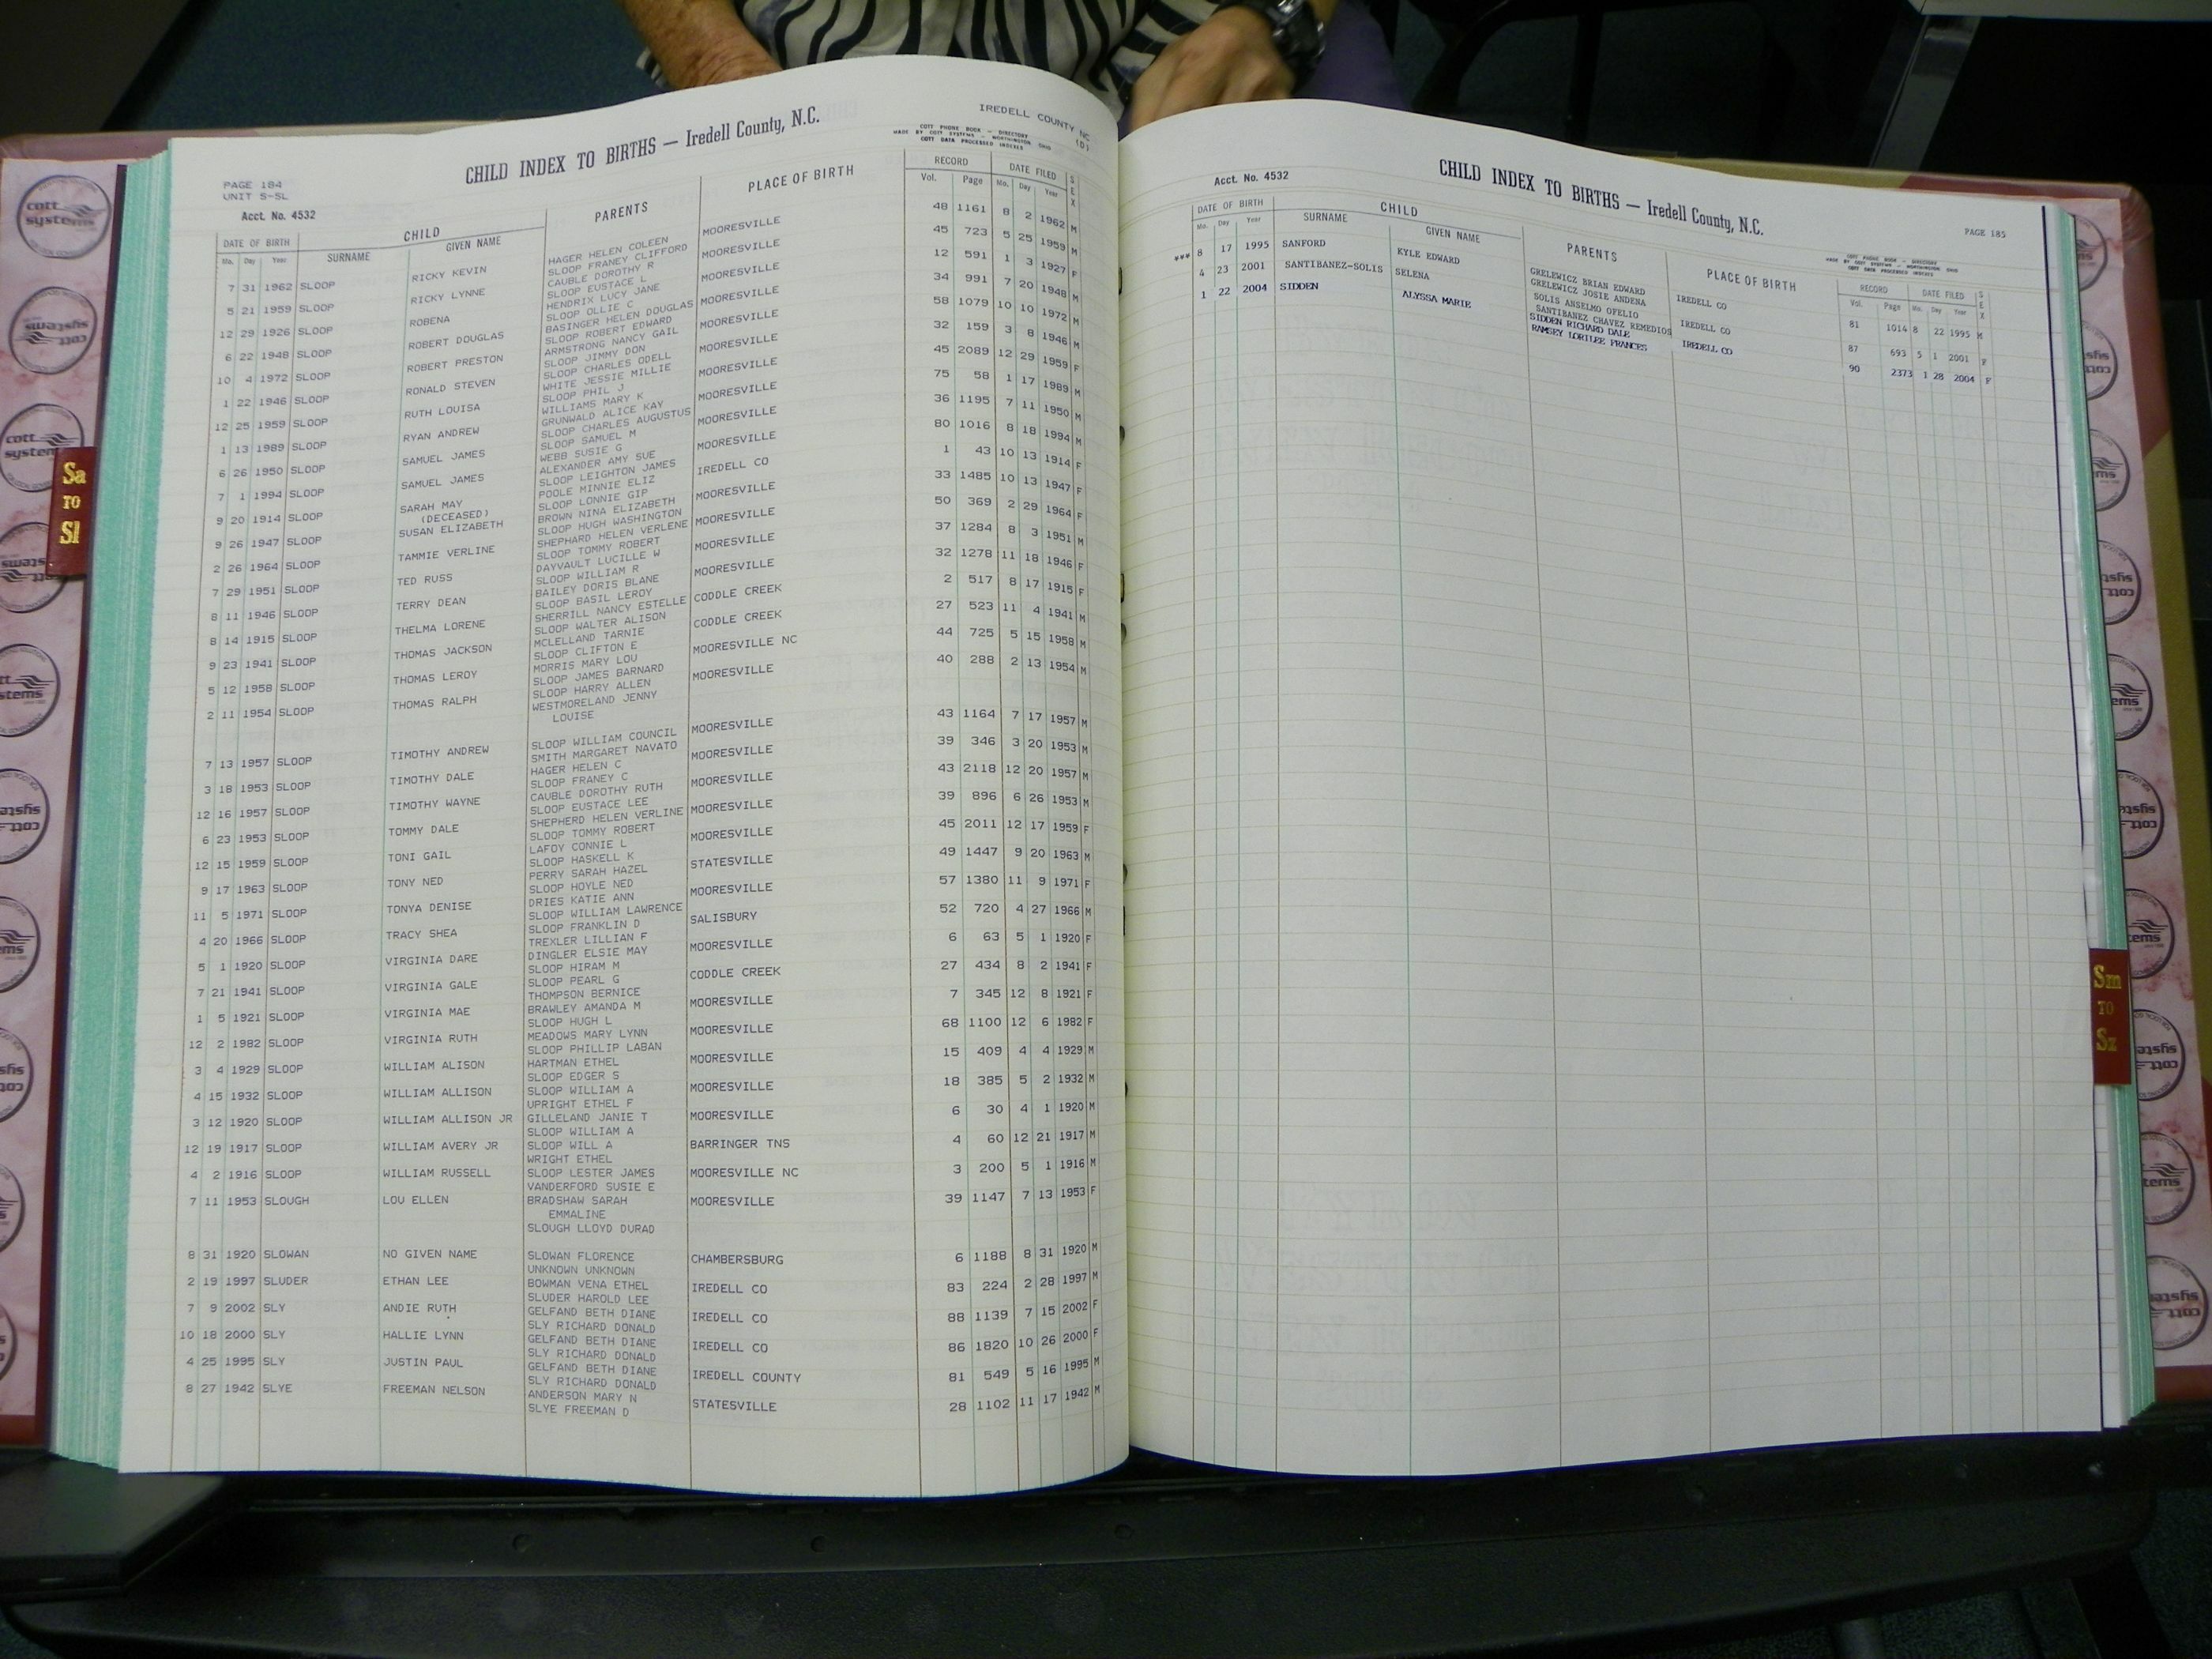 IREDELL COUNTY NC
(D)
CHILD INDEX TO BIRTHS — Iredell County, N.C.
COTT PHONE BOOK — DIRECTORY
MADE BY COTT SYSTEMS — WORTHINGTON OHIO
COTT DATA PROCESSED INDEXES
PAGE 184
UNIT S-SL
Acct. No. 4532
DATE OF BIRTH CHILD PARENTS PLACE OF BIRTH RECORD DATE FILED SEX
Mo. Day Year SURNAME GIVEN NAME Vol. Page Mo. Day Year
7 31 1962 SLOOP RICKY KEVIN HAGER HELEN COLEEN MOORESVILLE 48 1161 8 2 1962 M
SLOOP FRANEY CLIFFORD
5 21 1959 SLOOP RICKY LYNNE CAUBLE DOROTHY R MOORESVILLE 45 723 5 25 1959 M
SLOOP EUSTACE L
12 29 1926 SLOOP ROBENA HENDRIX LUCY JANE MOORESVILLE 12 591 1 3 1927 F
SLOOP OLLIE C
6 22 1948 SLOOP ROBERT DOUGLAS BASINGER HELEN DOUGLAS MOORESVILLE 34 991 7 20 1948 M
SLOOP ROBERT EDWARD
10 4 1972 SLOOP ROBERT PRESTON ARMSTRONG NANCY GAIL MOORESVILLE 58 1079 10 10 1972 M
SLOOP JIMMY DON
1 22 1946 SLOOP RONALD STEVEN SLOOP CHARLES ODELL MOORESVILLE 32 159 3 8 1946 M
WHITE JESSIE MILLIE
12 25 1959 SLOOP RUTH LOUISA SLOOP PHIL J MOORESVILLE 45 2089 12 29 1959 F
WILLIAMS MARY K
1 13 1989 SLOOP RYAN ANDREW GRUNWALD ALICE KAY MOORESVILLE 75 58 1 17 1989 M
SLOOP CHARLES AUGUSTUS
6 26 1950 SLOOP SAMUEL JAMES SLOOP SAMUEL M MOORESVILLE 36 1195 7 11 1950 M
WEBB SUSIE G
7 1 1994 SLOOP SAMUEL JAMES ALEXANDER AMY SUE MOORESVILLE 80 1016 8 18 1994 M
SLOOP LEIGHTON JAMES
9 20 1914 SLOOP SARAH MAY POOLE MINNIE ELIZ IREDELL CO 1 43 10 13 1914 F
(DECEASED) SLOOP LONNIE GIP
9 26 1947 SLOOP SUSAN ELIZABETH BROWN NINA ELIZABETH MOORESVILLE 33 1485 10 13 1947 F
SLOOP HUGH WASHINGTON
2 26 1964 SLOOP TAMMIE VERLINE SHEPHARD HELEN VERLENE MOORESVILLE 50 369 2 29 1964 F
SLOOP TOMMY ROBERT
7 29 1951 SLOOP TED RUSS DAYVAULT LUCILLE W MOORESVILLE 37 1284 8 3 1951 M
SLOOP WILLIAM R
8 11 1946 SLOOP TERRY DEAN BAILEY DORIS BLANE MOORESVILLE 32 1278 11 18 1946 F
SLOOP BASIL LEROY
8 14 1915 SLOOP THELMA LORENE SHERRILL NANCY ESTELLE CODDLE CREEK 2 517 8 17 1915 F
SLOOP WALTER ALISON
9 23 1941 SLOOP THOMAS JACKSON MCLELLAND TARNIE CODDLE CREEK 27 523 11 4 1941 M
SLOOP CLIFTON E
5 12 1958 SLOOP THOMAS LEROY MORRIS MARY LOU MOORESVILLE NC 44 725 5 15 1958 M
SLOOP JAMES BARNARD
2 11 1954 SLOOP THOMAS RALPH SLOOP HARRY ALLEN MOORESVILLE 40 288 2 13 1954 M
WESTMORELAND JENNY
LOUISE
7 13 1957 SLOOP TIMOTHY ANDREW SLOOP WILLIAM COUNCIL MOORESVILLE 43 1164 7 17 1957 M
SMITH MARGARET NAVATO
3 18 1953 SLOOP TIMOTHY DALE HAGER HELEN C MOORESVILLE 39 346 3 20 1953 M
SLOOP FRANEY C
12 16 1957 SLOOP TIMOTHY WAYNE CAUBLE DOROTHY RUTH MOORESVILLE 43 2118 12 20 1957 M
SLOOP EUSTACE LEE
6 23 1953 SLOOP TOMMY DALE SHEPHERD HELEN VERLINE MOORESVILLE 39 896 6 26 1953 M
SLOOP TOMMY ROBERT
12 15 1959 SLOOP TONI GAIL LAFOY CONNIE L MOORESVILLE 45 2011 12 17 1959 F
SLOOP HASKELL K
9 17 1963 SLOOP TONY NED PERRY SARAH HAZEL STATESVILLE 49 1447 9 20 1963 M
SLOOP HOYLE NED
11 5 1971 SLOOP TONYA DENISE DRIES KATIE ANN MOORESVILLE 57 1380 11 9 1971 F
SLOOP WILLIAM LAWRENCE
4 20 1966 SLOOP TRACY SHEA SLOOP FRANKLIN D SALISBURY 52 720 4 27 1966 M
TREXLER LILLIAN F
5 1 1920 SLOOP VIRGINIA DARE DINGLER ELSIE MAY MOORESVILLE 6 63 5 1 1920 F
SLOOP HIRAM M
7 21 1941 SLOOP VIRGINIA GALE SLOOP PEARL G CODDLE CREEK 27 434 8 2 1941 F
THOMPSON BERNICE
1 5 1921 SLOOP VIRGINIA MAE BRAWLEY AMANDA M MOORESVILLE 7 345 12 8 1921 F
SLOOP HUGH L
12 2 1982 SLOOP VIRGINIA RUTH MEADOWS MARY LYNN MOORESVILLE 68 1100 12 6 1982 F
SLOOP PHILLIP LABAN
3 4 1929 SLOOP WILLIAM ALISON HARTMAN ETHEL MOORESVILLE 15 409 4 4 1929 M
SLOOP EDGER S
4 15 1932 SLOOP WILLIAM ALLISON SLOOP WILLIAM A MOORESVILLE 18 385 5 2 1932 M
UPRIGHT ETHEL F
3 12 1920 SLOOP WILLIAM ALLISON JR GILLELAND JANIE T MOORESVILLE 6 30 4 1 1920 M
SLOOP WILLIAM A
12 19 1917 SLOOP WILLIAM AVERY JR SLOOP WILL A BARRINGER TNS 4 60 12 21 1917 M
WRIGHT ETHEL
4 2 1916 SLOOP WILLIAM RUSSELL SLOOP LESTER JAMES MOORESVILLE NC 3 200 5 1 1916 M
VANDERFORD SUSIE E
7 11 1953 SLOUGH LOU ELLEN BRADSHAW SARAH MOORESVILLE 39 1147 7 13 1953 F
EMMALINE
SLOUGH LLOYD DURAD
8 31 1920 SLOWAN NO GIVEN NAME SLOWAN FLORENCE CHAMBERSBURG 6 1188 8 31 1920 M
UNKNOWN UNKNOWN
2 19 1997 SLUDER ETHAN LEE BOWMAN VENA ETHEL IREDELL CO 83 224 2 28 1997 M
SLUDER HAROLD LEE
7 9 2002 SLY ANDIE RUTH GELFAND BETH DIANE IREDELL CO 88 1139 7 15 2002 F
SLY RICHARD DONALD
10 18 2000 SLY HALLIE LYNN GELFAND BETH DIANE IREDELL CO 86 1820 10 26 2000 F
SLY RICHARD DONALD
4 25 1995 SLY JUSTIN PAUL GELFAND BETH DIANE IREDELL COUNTY 81 549 5 16 1995 M
SLY RICHARD DONALD
8 27 1942 SLYE FREEMAN NELSON ANDERSON MARY N STATESVILLE 28 1102 11 17 1942 M
SLYE FREEMAN D
Sa
TO
Sl
cott
systems
CHILD INDEX TO BIRTHS — Iredell County, N.C.
Acct. No. 4532
PAGE 185
DATE OF BIRTH CHILD PARENTS PLACE OF BIRTH RECORD DATE FILED SEX
Mo. Day Year SURNAME GIVEN NAME Vol. Page Mo. Day Year
*** 8 17 1995 SANFORD KYLE EDWARD GRELEWICZ BRIAN EDWARD IREDELL CO 81 1014 8 22 1995 M
GRELEWICZ JOSIE ANDENA
4 23 2001 SANTIBANEZ-SOLIS SELENA SOLIS ANSELMO OFELIO IREDELL CO 87 693 5 1 2001 F
SANTIBANEZ CHAVEZ REMEDIOS
1 22 2004 SIDDEN ALYSSA MARIE SIDDEN RICHARD DALE IREDELL CO 90 2373 1 28 2004 F
RAMSEY LORILEE FRANCES
Sm
TO
Sz